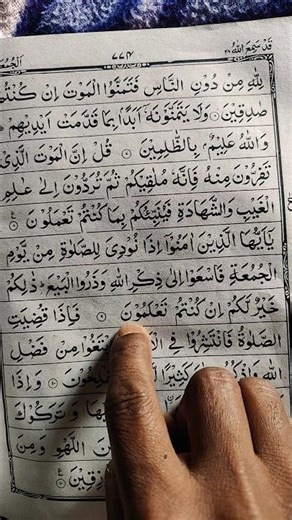 قَدْ سَمِعَ اللّٰهُ ٢٨ ٧٧٤
لِلّٰهِ مِنْ دُوْنِ النَّاسِ فَتَمَنَّوُا الْمَوْتَ اِنْ كُنْتُمْ
صٰدِقِيْنَ ۝ وَلَا يَتَمَنَّوْنَهٗۤ اَبَدًۢا بِمَا قَدَّمَتْ اَيْدِيْهِمْ ؕ
وَاللّٰهُ عَلِيْمٌۢ بِالظّٰلِمِيْنَ ۝ قُلْ اِنَّ الْمَوْتَ الَّذِيْ
تَفِرُّوْنَ مِنْهُ فَاِنَّهٗ مُلٰقِيْكُمْ ثُمَّ تُرَدُّوْنَ اِلٰى عٰلِمِ
الْغَيْبِ وَالشَّهَادَةِ فَيُنَبِّئُكُمْ بِمَا كُنْتُمْ تَعْمَلُوْنَ ۝
يٰۤاَيُّهَا الَّذِيْنَ اٰمَنُوْۤا اِذَا نُوْدِيَ لِلصَّلٰوةِ مِنْ يَّوْمِ
الْجُمُعَةِ فَاسْعَوْا اِلٰى ذِكْرِ اللّٰهِ وَذَرُوا الْبَيْعَ ؕ ذٰلِكُمْ
خَيْرٌ لَّكُمْ اِنْ كُنْتُمْ تَعْلَمُوْنَ ۝ فَاِذَا قُضِيَتِ
الصَّلٰوةُ فَانْتَشِرُوْا فِي مِنْ فَضْلِ
اللّٰهِ كَثِيْرًا وَاِذَا
وَتَرَكُوْكَ
اللَّهْوِ وَمِنَ